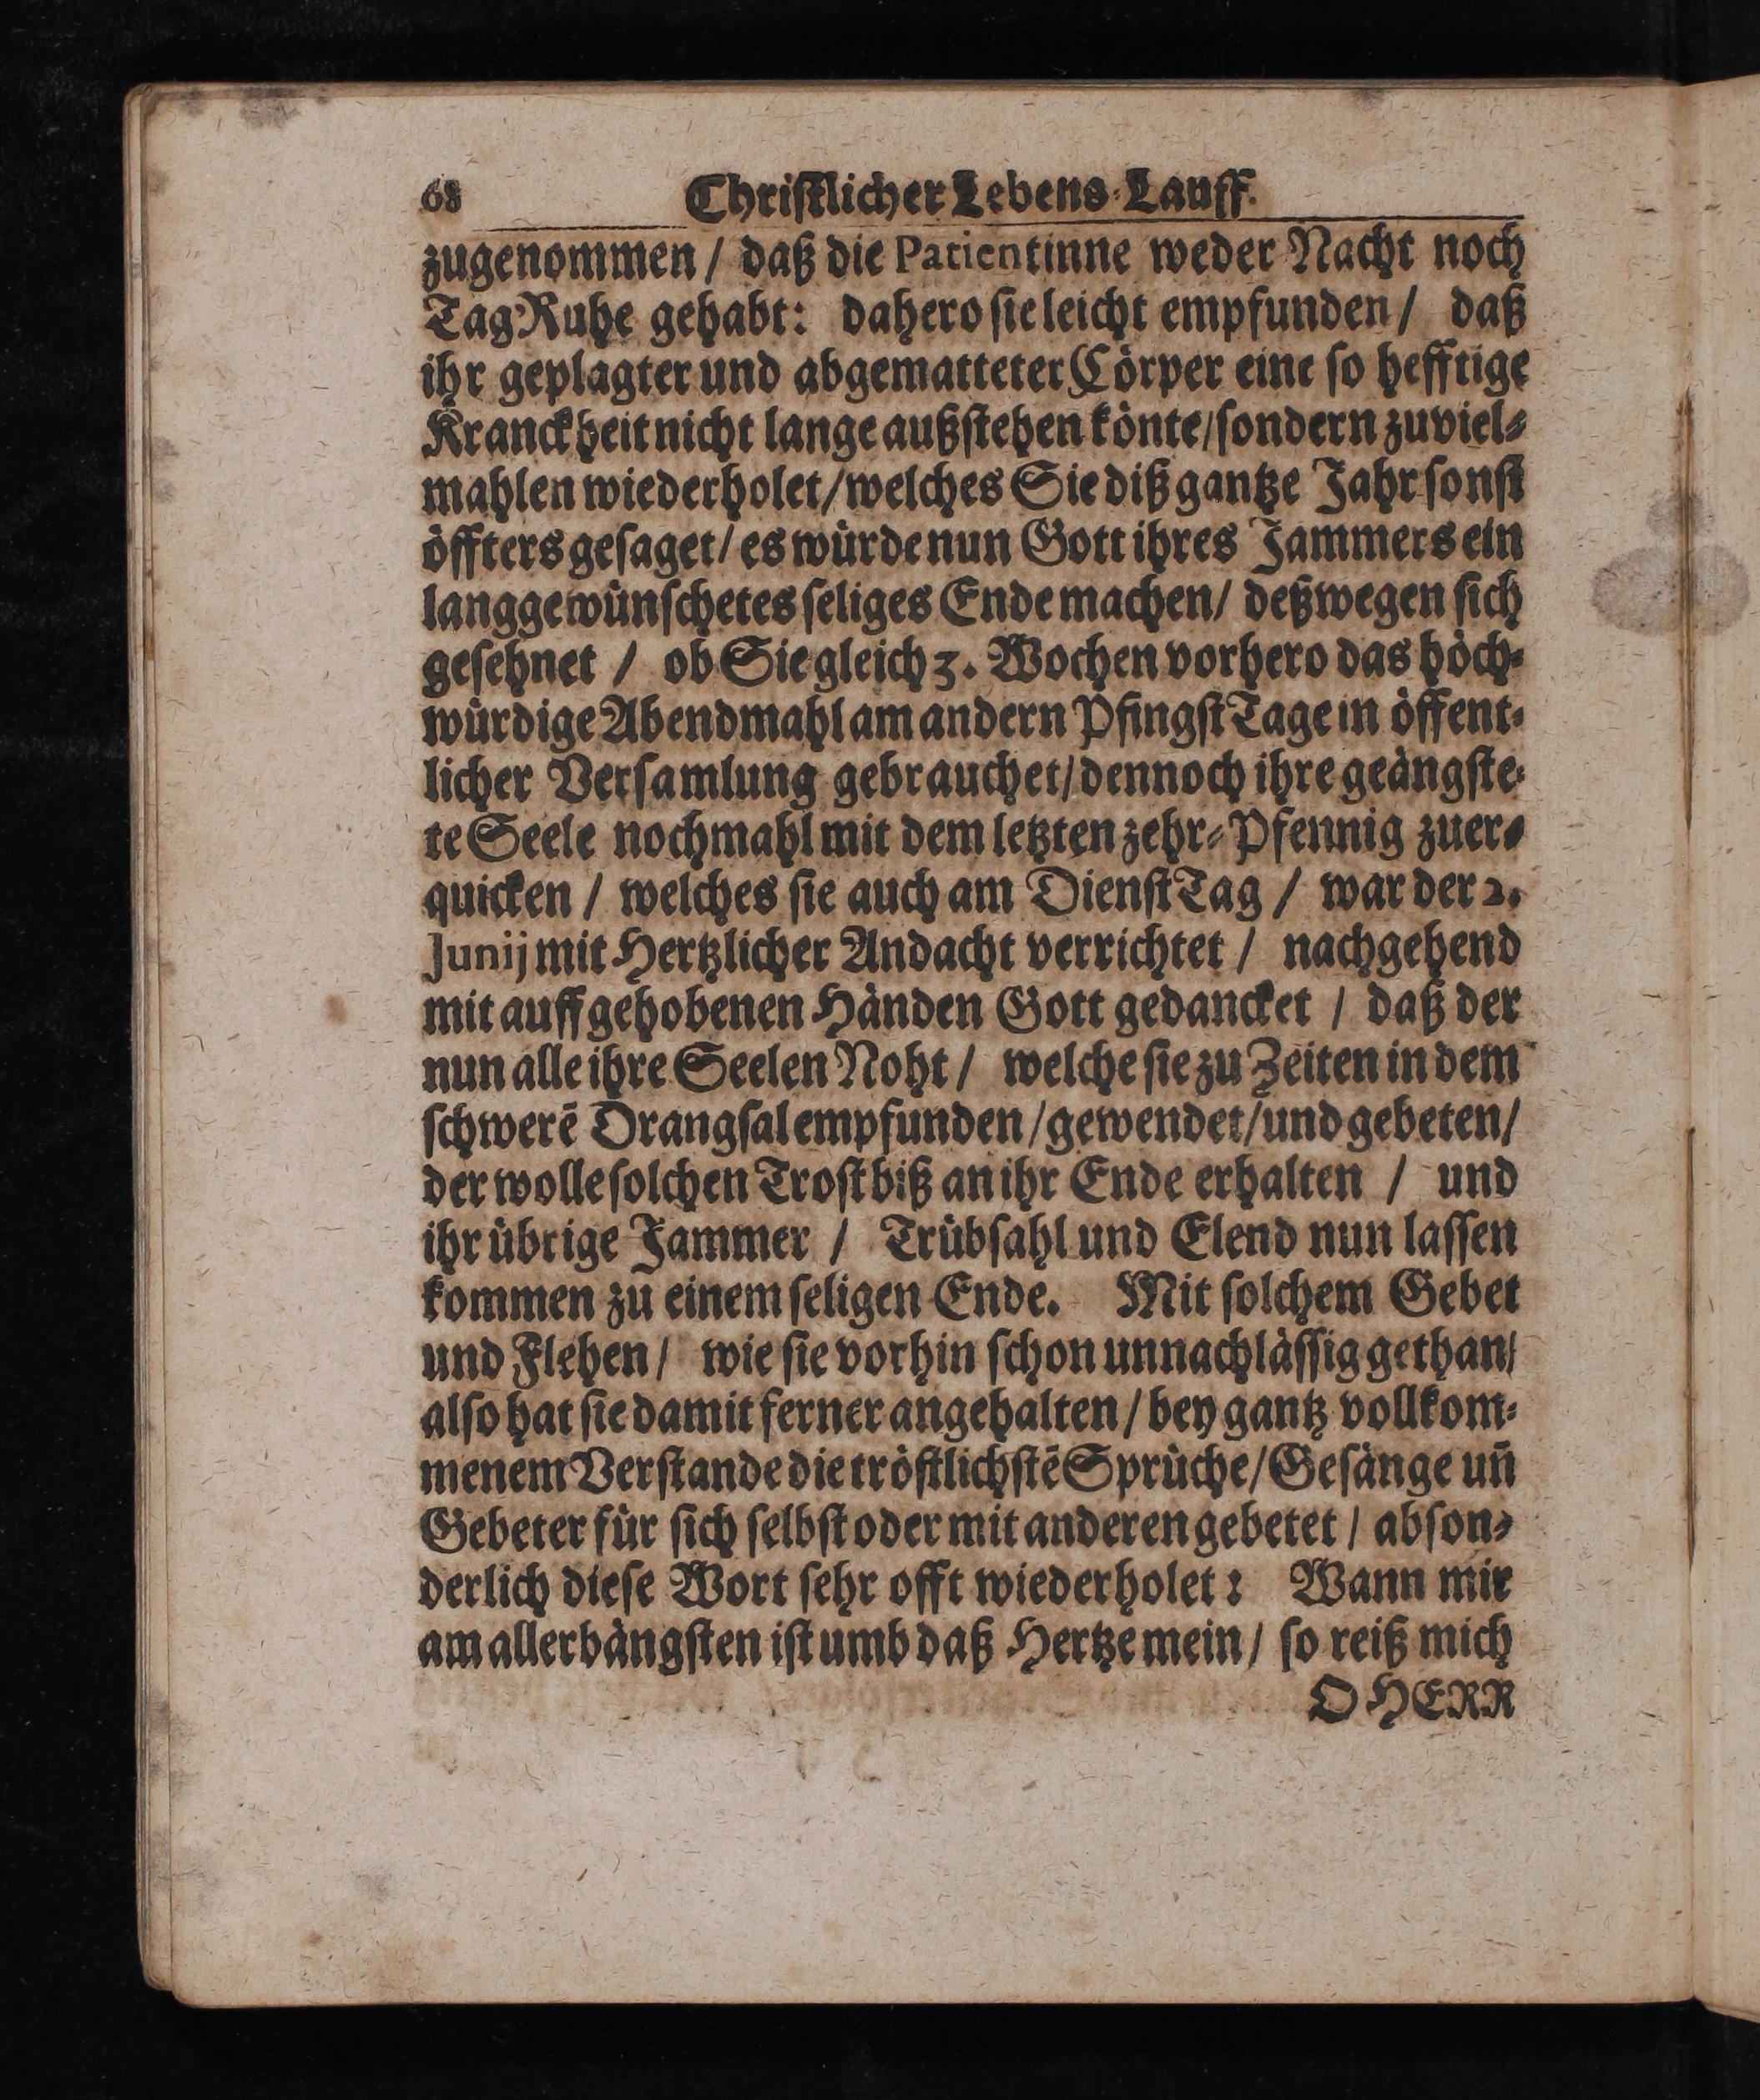 68 Chriſtlicher Lebens-Lauff.
zugenommen / daß die Patientinne weder Nacht noch
Tag Ruhe gehabt: dahero ſie leicht empfunden / daß
ihr geplagter und abgematteter Cörper eine ſo hefftige
Kranckheit nicht lange außſtehen könte / ſondern zu viel-
mahlen wiederholet / welches Sie diß gantze Jahr ſonſt
öffters geſaget / es würde nun Gott ihres Jammers ein
langgewünſchetes ſeliges Ende machen / deßwegen ſich
geſehnet / ob Sie gleich 3. Wochen vorhero das höch-
würdige Abendmahl am andern PfingſtTage in öffent-
licher Verſamlung gebrauchet / dennoch ihre geängſte-
te Seele nochmahl mit dem letzten zehr-Pfennig zuer-
quicken / welches ſie auch am DienſtTag / war der 2.
Junij mit Hertzlicher Andacht verrichtet / nachgehend
mit auffgehobenen Händen Gott gedancket / daß der
nun alle ihre Seelen Noht / welche ſie zu Zeiten in dem
ſchwerē Drangſal empfunden / gewendet / und gebeten /
der wolle ſolchen Troſt biß an ihr Ende erhalten / und
ihr übrige Jammer / Trübſahl und Elend nun laſſen
kommen zu einem ſeligen Ende. Mit ſolchem Gebet
und Flehen / wie ſie vorhin ſchon unnachläſſig gethan /
alſo hat ſie damit ferner angehalten / bey gantz vollkom-
menem Verſtande die tröſtlichſtē Sprüche / Geſänge uñ
Gebeter für ſich ſelbſt oder mit anderen gebetet / abſon-
derlich dieſe Wort ſehr offt wiederholet: Wann mir
am allerbängſten iſt umb daß Hertze mein / ſo reiß mich
O HERR